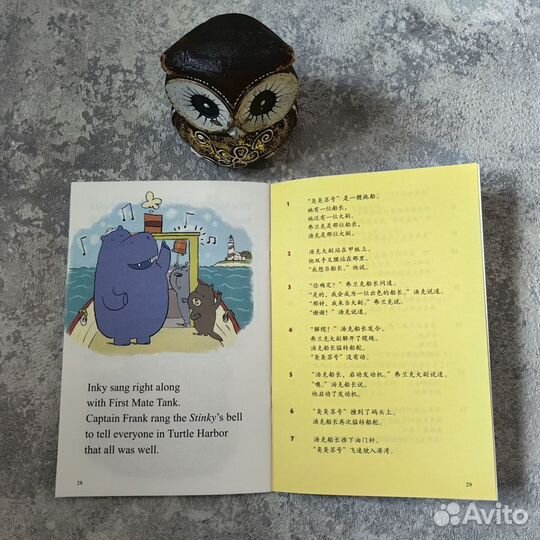 Inky sang right along
with First Mate Tank.
Captain Frank rang the Stinky's bell
to tell everyone in Turtle Harbor
that all was well.
28
1 “臭臭苏号”是一艘拖船。
她有一位船长。
她还有一位大副。
弗兰克是那位船长。
汤克是那位大副。
2 汤克大副站在甲板上。
他双手叉腰站在那里。
“我想当船长。”他说。
3 “你确定？”弗兰克船长问道。
“是的，我会成为一位出色的船长。”汤克说道。
“那好，我来当大副。”弗兰克说。
“谢谢！”汤克说道。
4 “解缆！”汤克船长发令。
弗兰克大副解开了缆绳。
汤克船长猛转船舵。
“臭臭苏号”没有动。
5 “汤克船长，启动发动机。”弗兰克大副说道。
“噢。”汤克船长说。
他启动了发动机。
6 “臭臭苏号”撞到了码头上。
汤克船长再次猛转船舵。
7 汤克船长推下油门杆。
“臭臭苏号”飞速驶入港湾。
29
Avito